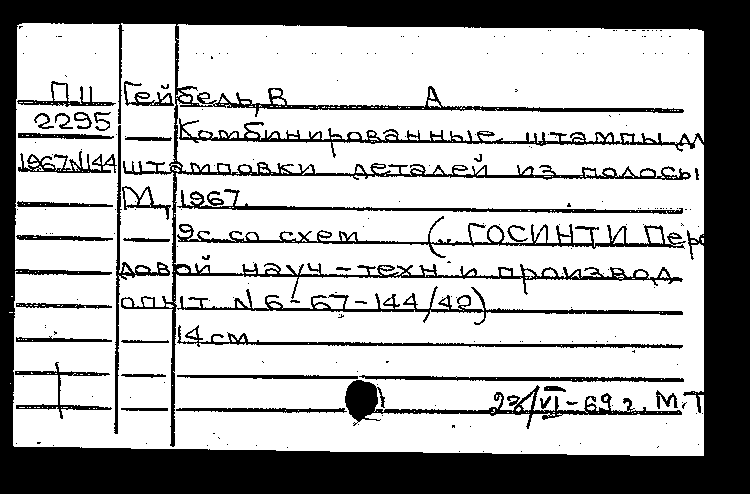 П11 Гейбель, В А
2295 Комбинированные штампы дл
1967N144 штамповки деталей из полосы
М, 1967.
9с. со схем („ГОСИНТИ Пере
довой науч-техн и производ
опыт. N 6-67-144/40)
14 см.
23/VI-69 г. М.Т